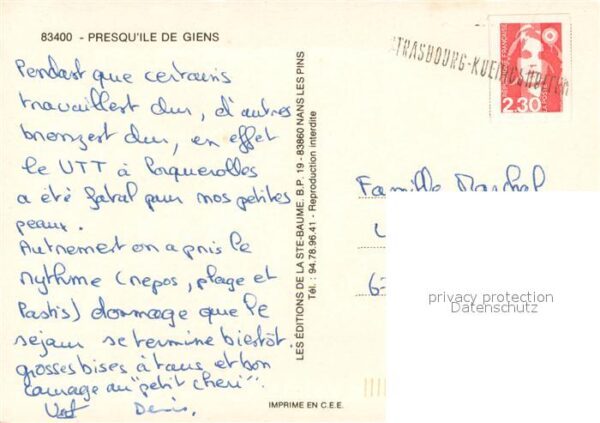 83400 - PRESQU'ILE DE GIENS
Pendant que certains
travaillent dur, d'autres
bronzent dur, en effet
le VTT à Porquerolles
a été fatal pour nos petites
peaux.
Autrement on a pris le
rythme (repos, plage et
Pastis) dommage que le
sejour se termine bientôt.
grosses bises à tous, et bon
courage au "petit cheri".
Denis.
LES ÉDITIONS DE LA STE-BAUME, B.P. 19 - 83860 NANS LES PINS
Tél. : 94.78.96.41 - Reproduction interdite
IMPRIME EN C.E.E.
STRASBOURG-KOENIGSHOFFEN
2,30
Famille
67
privacy protection
Datenschutz